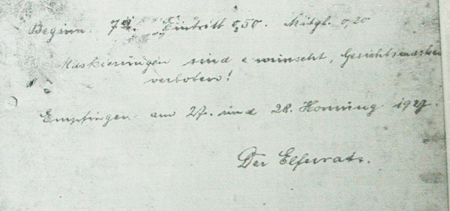 Beginn. 7 Eintritt 0,50. Mitgl. 0,20
Maskierungen sind erwünscht, Gesichtsmasken
verboten!
Empfingen am 27. und 28. Hornung 1927.
Der Elferrat.